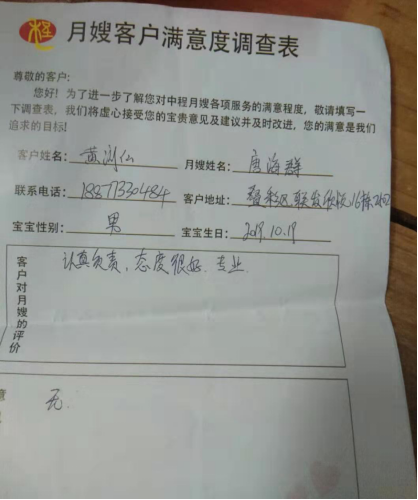 月嫂客户满意度调查表
尊敬的客户:
您好! 为了进一步了解您对中程月嫂各项服务的满意程度, 敬请填写一
下调查表, 我们将虚心接受您的宝贵意见及建议并及时改进, 您的满意是我们
追求的目标!
客户姓名: 黄 仙 月嫂姓名: 唐海群
联系电话: 18877330484 客户地址:
宝宝性别: 男 宝宝生日: 2019.10.19
客户对月嫂的评价
认真负责, 态度很好. 专业.
意
无.